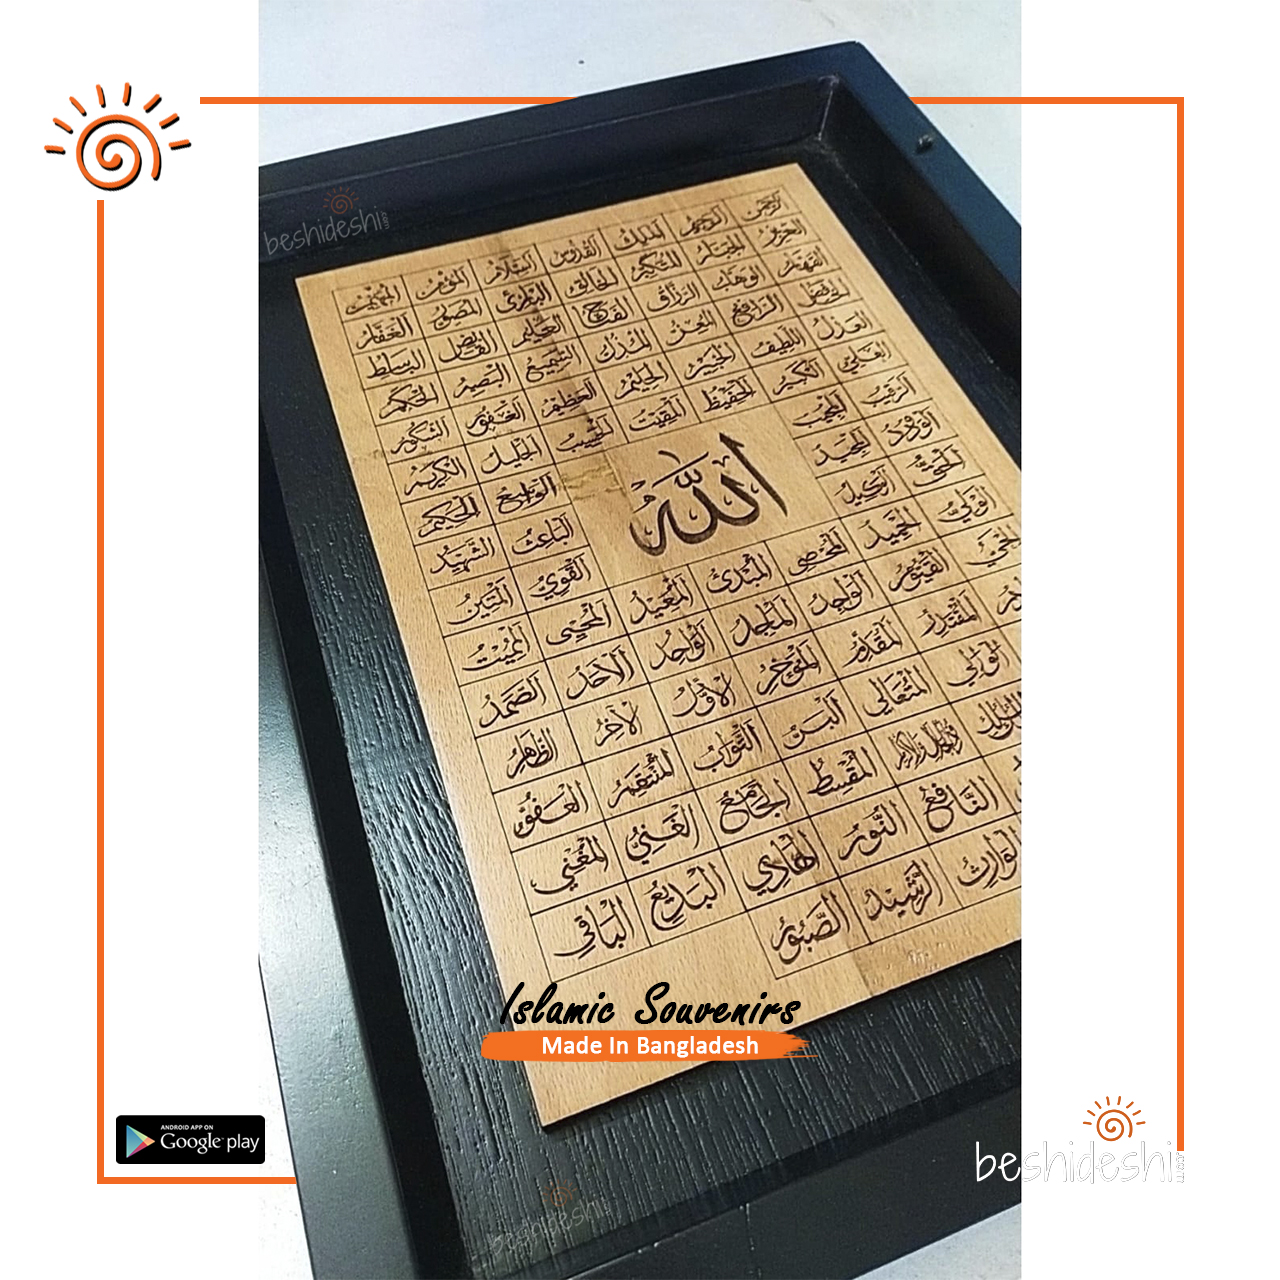 beshideshi.com
الرحمن الرحيم الملك القدوس السلام المؤمن المهيمن
العزيز الجبار المتكبر الخالق البارئ المصور الغفار
القهار الوهاب الرزاق الفتاح العليم القابض الباسط
الخافض الرافع المعز المذل السميع البصير الحكم
العدل اللطيف الخبير الحليم العظيم الغفور الشكور
العلي الكبير الحفيظ المقيت الحسيب الجليل الكريم
الرقيب المجيب الواسع الحكيم
الودود المجيد الله الباعث الشهيد
الحق الوكيل القوي المتين
الولي الحميد المحصي المبدئ المعيد المحيي المميت
الحي القيوم الواجد الماجد الواحد الاحد الصمد
المقتدر المقدم المؤخر الاول الاخر الظاهر
الوالي المتعالي البر التواب المنتقم العفو
ذوالجلال والاكرام المقسط الجامع الغني المغني
النافع النور الهادي البديع الباقي
الوارث الرشيد الصبور
Islamic Souvenirs
Made In Bangladesh
ANDROID APP ON
Google play
beshideshi.com
beshideshi